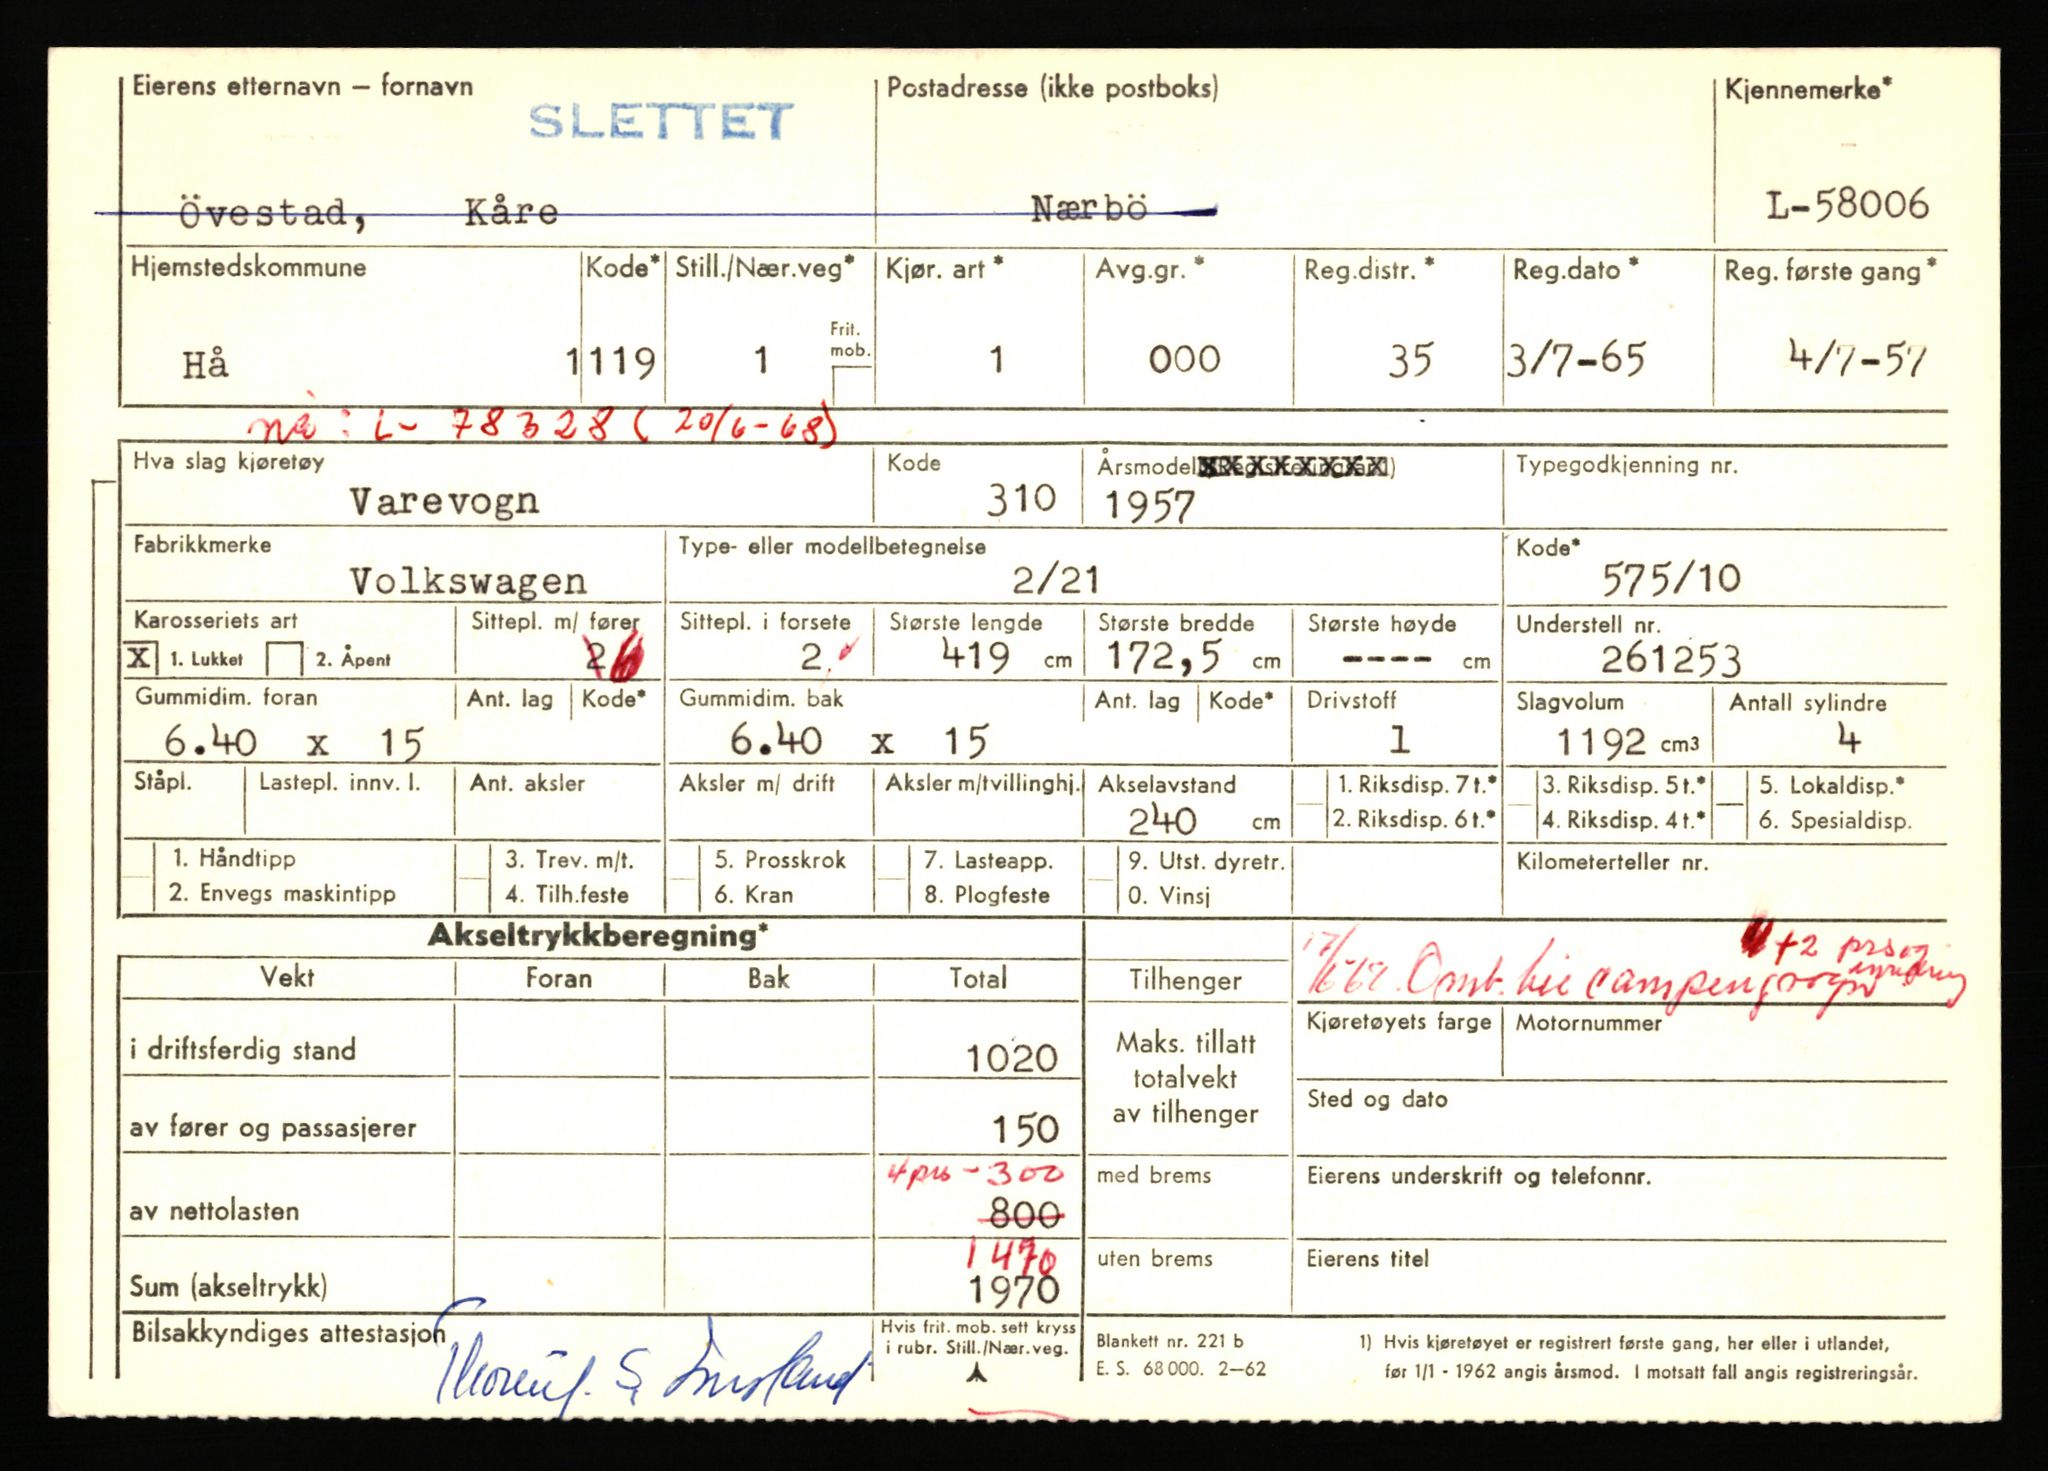 Eierens etternavn – fornavn
SLETTET
Postadresse (ikke postboks)
Kjennemerke*
Övestad, Kåre
Nærbö
L-58006
Hjemstedskommune
Kode*
Still./Nær.veg*
Kjør. art *
Avg.gr. *
Reg.distr. *
Reg.dato *
Reg. første gang *
Frit.
mob.
Hå
1119
1
1
000
35
3/7-65
4/7-57
nå : L- 78328 ( 20/6-68)
Hva slag kjøretøy
Kode
Årsmodell
Typegodkjenning nr.
Varevogn
310
1957
Fabrikkmerke
Type- eller modellbetegnelse
Kode*
Volkswagen
2/21
575/10
Karosseriets art
Sittepl. m/ fører
Sittepl. i forsete
Største lengde
Største bredde
Største høyde
Understell nr.
X 1. Lukket
2. Åpent
2
2
419 cm
172,5 cm
---- cm
261253
Gummidim. foran
Ant. lag
Kode*
Gummidim. bak
Ant. lag
Kode*
Drivstoff
Slagvolum
Antall sylindre
6.40 x 15
6.40 x 15
1
1192 cm3
4
Ståpl.
Lastepl. innv. l.
Ant. aksler
Aksler m/ drift
Aksler m/tvillinghj.
Akselavstand
240 cm
1. Riksdisp. 7 t.*
2. Riksdisp. 6 t.*
3. Riksdisp. 5 t.*
4. Riksdisp. 4 t.*
5. Lokaldisp.*
6. Spesialdisp.
1. Håndtipp
2. Envegs maskintipp
3. Trev. m/t.
4. Tilh.feste
5. Prosskrok
6. Kran
7. Lasteapp.
8. Plogfeste
9. Utst. dyretr.
0. Vinsj
Kilometerteller nr.
Akseltrykkberegning*
+2 prs og
Vekt
Foran
Bak
Total
Tilhenger
Kjøretøyets farge
Motornummer
i driftsferdig stand
1020
Maks. tillatt
totalvekt
av tilhenger
Sted og dato
av fører og passasjerer
150
4 prs - 300
med brems
Eierens underskrift og telefonnr.
av nettolasten
800
1470
uten brems
Eierens titel
Sum (akseltrykk)
1970
Bilsakkyndiges attestasjon
Hvis frit. mob. sett kryss
i rubr. Still./Nær.veg.
Blankett nr. 221 b
E. S. 68 000. 2–62
1) Hvis kjøretøyet er registrert første gang, her eller i utlandet,
før 1/1 - 1962 angis årsmod. I motsatt fall angis registreringsår.